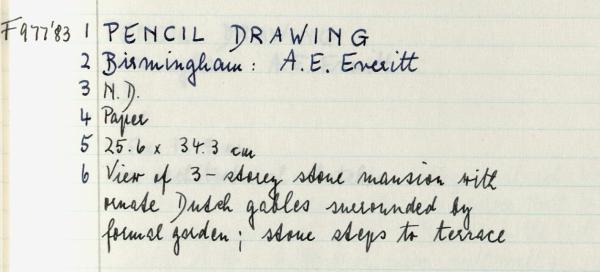 F977'83 1 PENCIL DRAWING
2 Birmingham: A.E. Everitt
3 N.D.
4 Paper
5 25.6 x 34.3 cm
6 View of 3-storey stone mansion with
ornate Dutch gables surrounded by
formal garden; stone steps to terrace